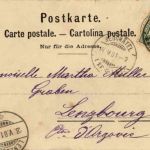 Postkarte.
Carte postale. — Cartolina postale.
Nur für die Adresse.
Martha Müller
Graben
Lenzbourg
Ct. d'Argovie